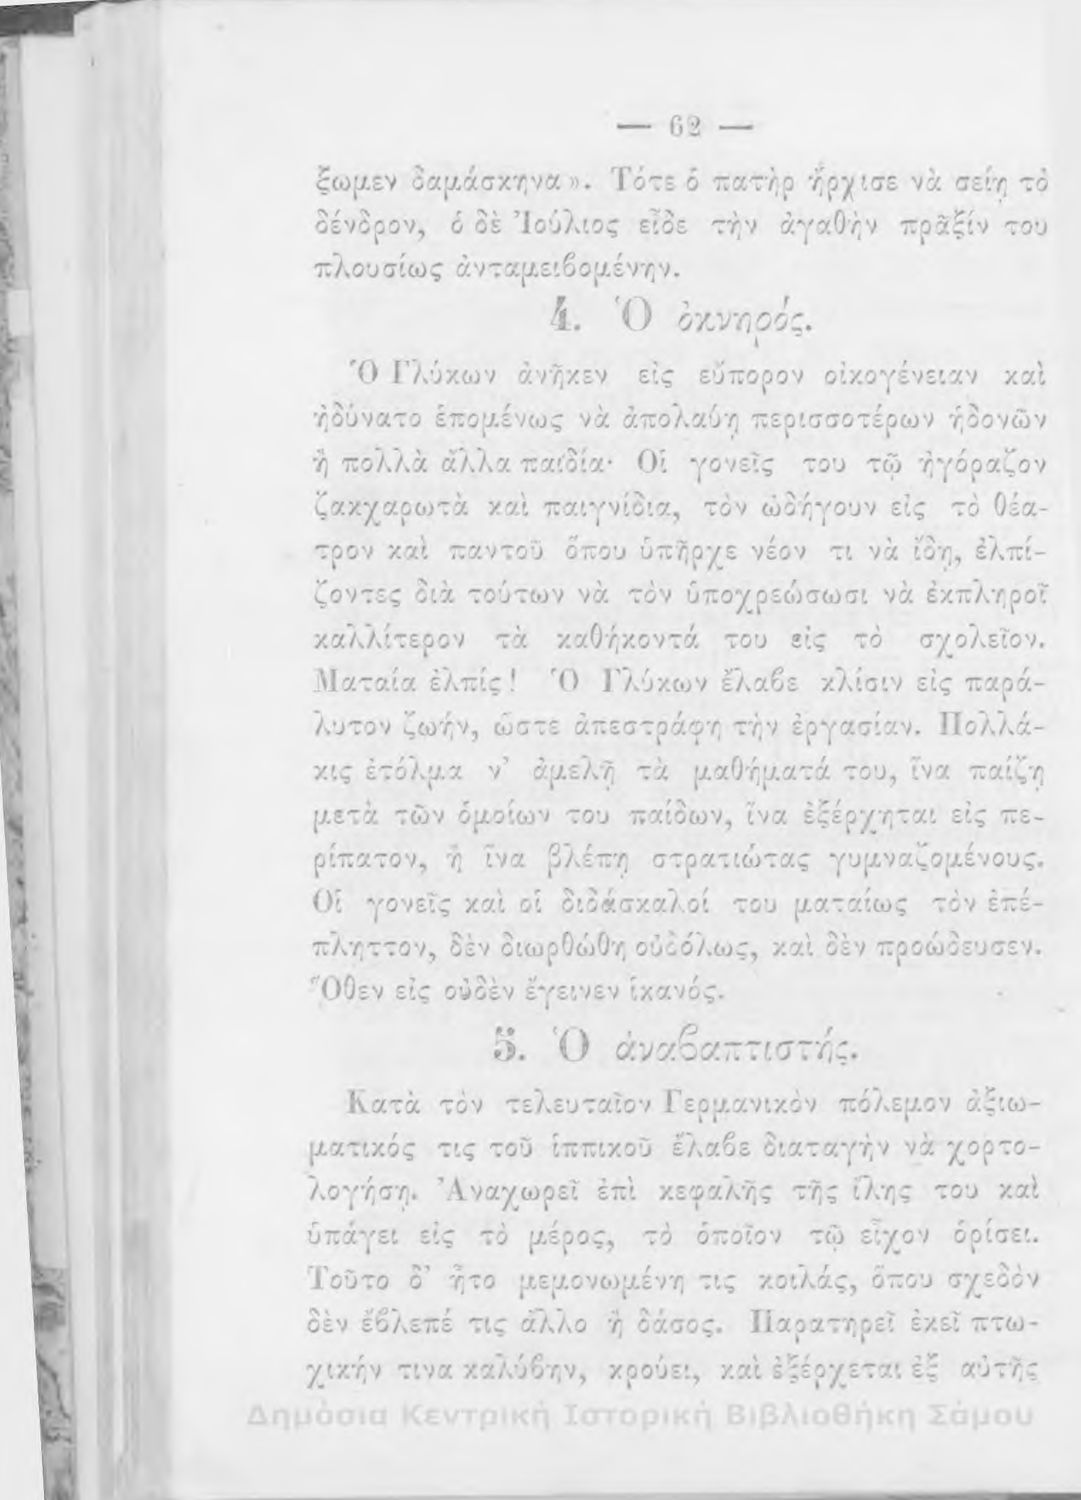 — 62 —
ξωμεν δαμάσκηνα». Τότε ὁ πατὴρ ἤρχισε νὰ σείῃ τὸ
δένδρον, ὁ δὲ Ἰούλιος εἶδε τὴν ἀγαθὴν πρᾶξίν του
πλουσίως ἀνταμειβομένην.
4. Ὁ ὀκνηρός.
Ὁ Γλύκων ἀνῆκεν εἰς εὔπορον οἰκογένειαν καὶ
ἠδύνατο ἑπομένως νὰ ἀπολαύῃ περισσοτέρων ἡδονῶν
ἢ πολλὰ ἄλλα παιδία· Οἱ γονεῖς του τῷ ἠγόραζον
ζακχαρωτὰ καὶ παιγνίδια, τὸν ὡδήγουν εἰς τὸ θέα-
τρον καὶ παντοῦ ὅπου ὑπῆρχε νέον τι νὰ ἴδῃ, ἐλπί-
ζοντες διὰ τούτων νὰ τὸν ὑποχρεώσωσι νὰ ἐκπληροῖ
καλλίτερον τὰ καθήκοντά του εἰς τὸ σχολεῖον.
Ματαία ἐλπίς! Ὁ Γλύκων ἔλαβε κλίσιν εἰς παρά-
λυτον ζωήν, ὥστε ἀπεστράφη τὴν ἐργασίαν. Πολλά-
κις ἐτόλμα ν’ ἀμελῇ τὰ μαθήματά του, ἵνα παίζῃ
μετὰ τῶν ὁμοίων του παίδων, ἵνα ἐξέρχηται εἰς πε-
ρίπατον, ἢ ἵνα βλέπῃ στρατιώτας γυμναζομένους.
Οἱ γονεῖς καὶ οἱ διδάσκαλοί του ματαίως τὸν ἐπέ-
πληττον, δὲν διωρθώθη οὐδόλως, καὶ δὲν προώδευσεν.
Ὅθεν εἰς οὐδὲν ἔγεινεν ἱκανός.
5. Ὁ ἀναβαπτιστής.
Κατὰ τὸν τελευταῖον Γερμανικὸν πόλεμον ἀξιω-
ματικός τις τοῦ ἱππικοῦ ἔλαβε διαταγὴν νὰ χορτο-
λογήσῃ. Ἀναχωρεῖ ἐπὶ κεφαλῆς τῆς ἴλης του καὶ
ὑπάγει εἰς τὸ μέρος, τὸ ὁποῖον τῷ εἶχον ὁρίσει.
Τοῦτο δ’ ἦτο μεμονωμένη τις κοιλάς, ὅπου σχεδὸν
δὲν ἔβλεπέ τις ἄλλο ἢ δάσος. Παρατηρεῖ ἐκεῖ πτω-
χικήν τινα καλύβην, κρούει, καὶ ἐξέρχεται ἐξ αὐτῆς
Δημόσια Κεντρική Ιστορική Βιβλιοθήκη Σάμου